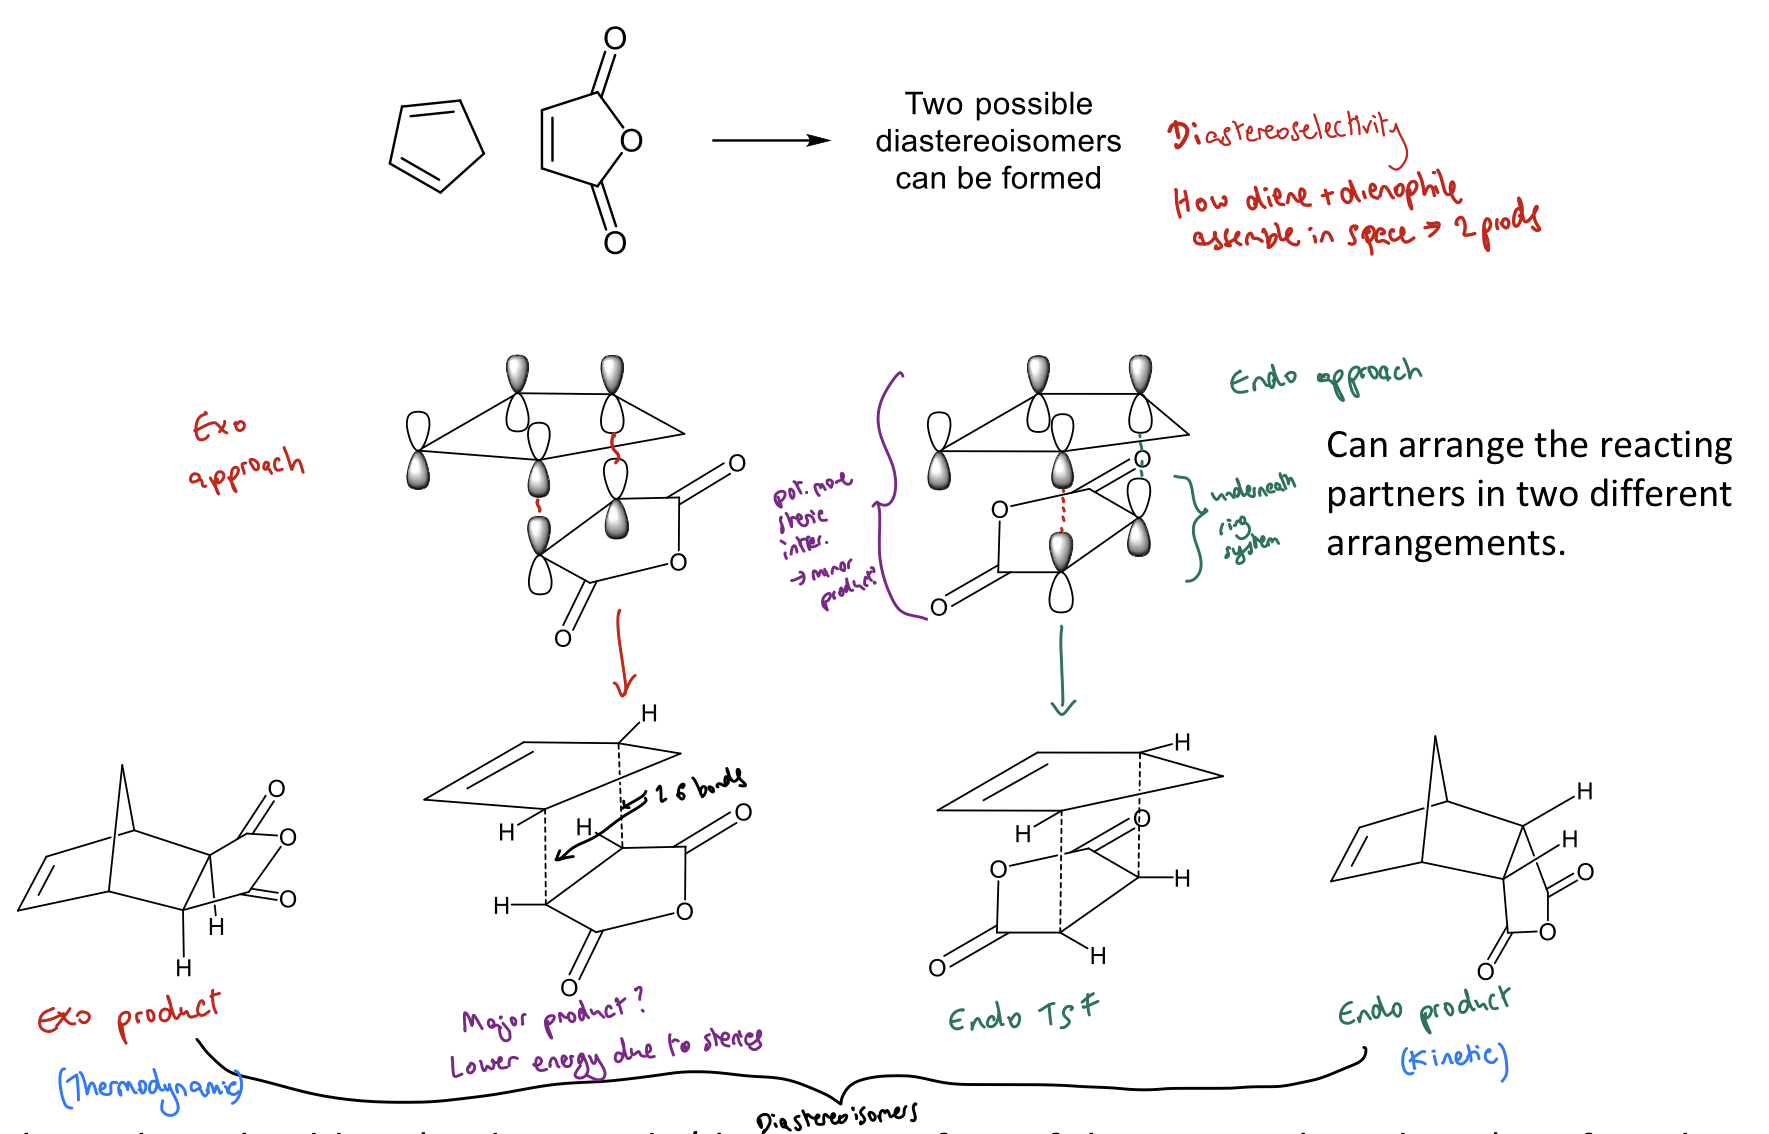 O
O
O
Two possible
diastereoisomers
can be formed
Diastereoselectivity
How diene + dienophile
assemble in space → 2 prods
Exo
approach
O
O
O
pot. more
steric
inter.
→ minor
product?
O
O
O
Endo approach
underneath
ring
system
Can arrange the reacting
partners in two different
arrangements.
O
O
O
H
H
Exo product
(Thermodynamic)
H
H
2 σ bonds
H
H
O
O
O
Major product?
Lower energy due to sterics
H
H
O
O
H
H
O
Endo TS ≠
H
H
O
O
O
Endo product
(Kinetic)
Diastereoisomers